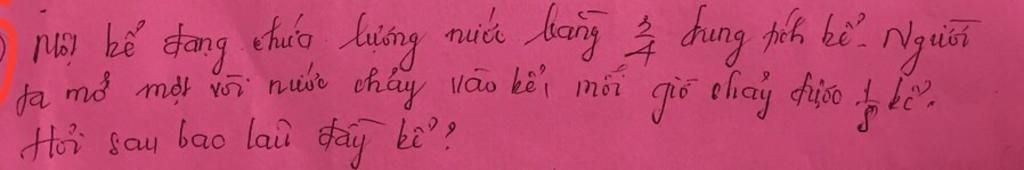 Một bể đang chứa lượng nước bằng 3/4 dung tích bể. Người
ta mở một vòi nước chảy vào bể, mỗi giờ chảy được 1/8 bể.
Hỏi sau bao lâu đầy bể?